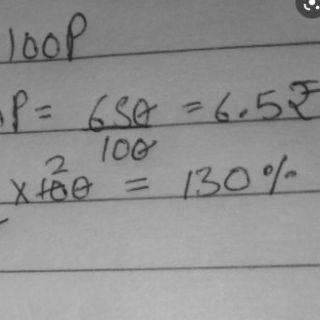 100P
P = 650/100 = 6.5₹
2
x 100 = 130%